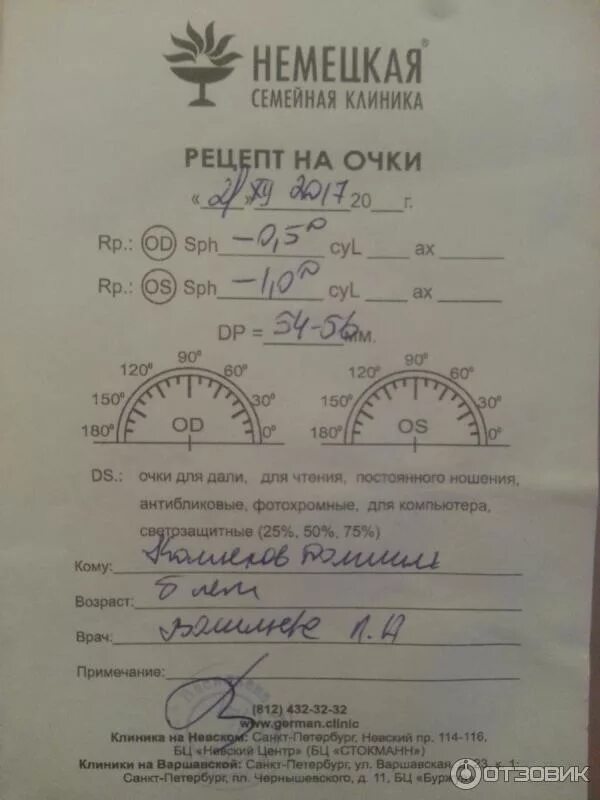 НЕМЕЦКАЯ®
СЕМЕЙНАЯ КЛИНИКА
РЕЦЕПТ НА ОЧКИ
« » XII 2017 20___г.
Rp.: OD Sph -0,5D cyL ___ ax ___
Rp.: OS Sph -1,0D cyL ___ ax ___
DP = 54-56 мм.
90° 90°
120° 60° 120° 60°
150° 30° 150° 30°
180° OD 0° 180° OS 0°
DS.: очки для дали, для чтения, постоянного ношения,
антибликовые, фотохромные, для компьютера,
светозащитные (25%, 50%, 75%)
Кому:
Возраст: лет
Врач: Л.А
Примечание:
(812) 432-32-32
www.german.clinic
Клиника на Невском: Санкт-Петербург, Невский пр. 114-116,
БЦ «Невский Центр» (БЦ «СТОКМАНН»)
Клиники на Варшавской: Санкт-Петербург, ул. Варшавская, д. 23, к. 1;
Санкт-Петербург, пл. Чернышевского, д. 11, БЦ
ОТЗОВИК